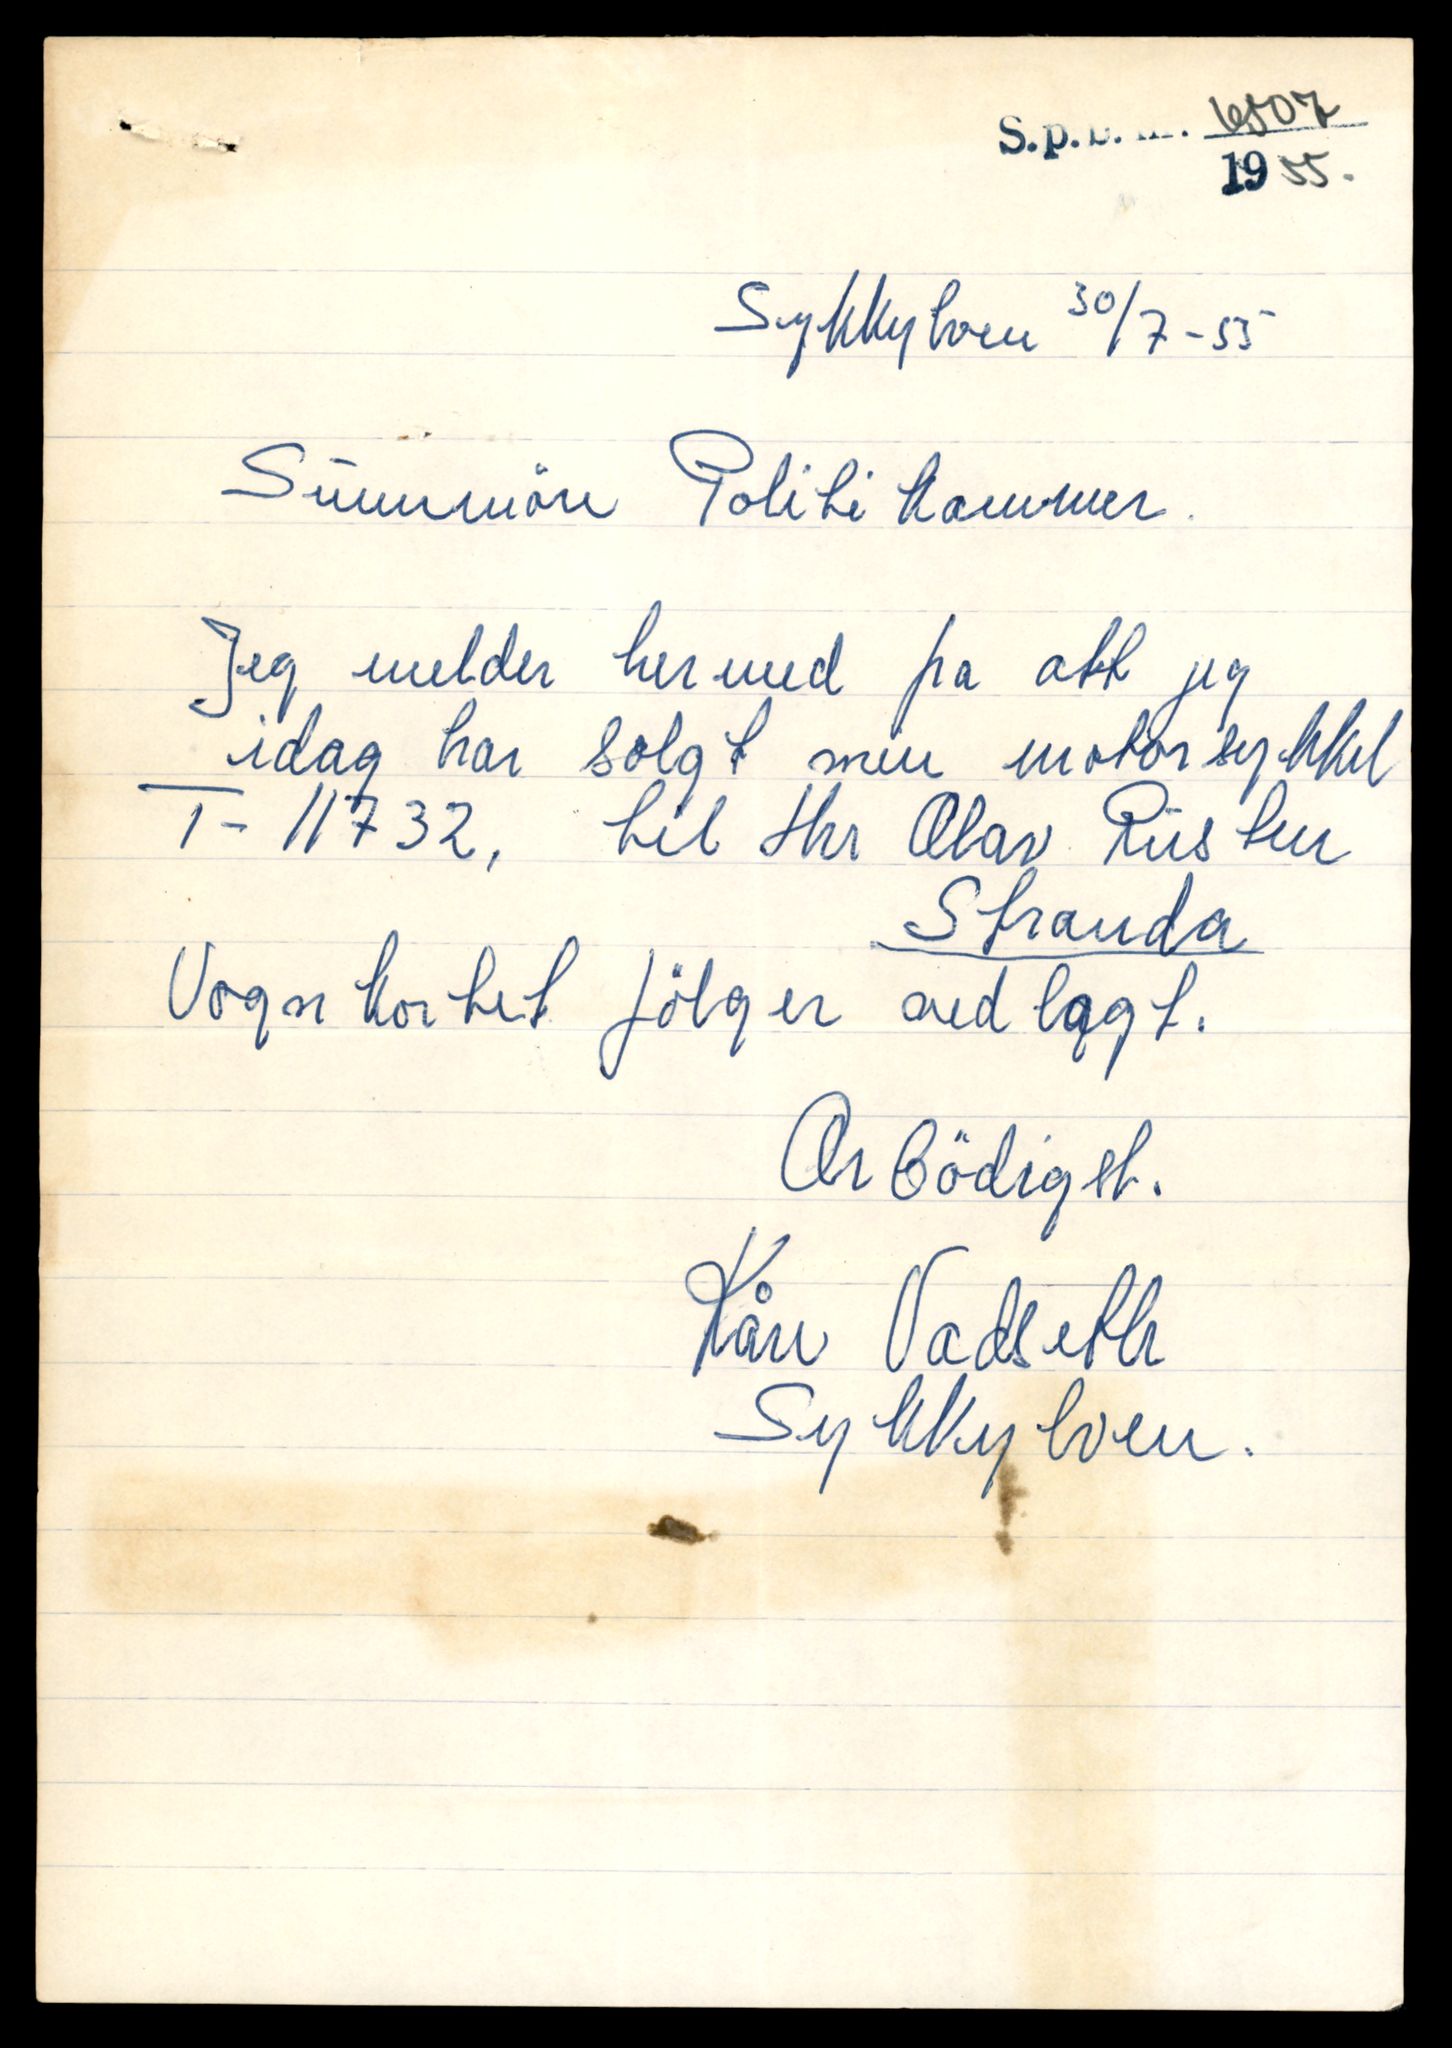 S.p.b. nr. 6507
1955.
Sykkylven 30/7-55
Sunnmöre Politikammer.
Jeg melder hermed fra att jeg
idag har solgt min motorsykkel
T-11732, til Hr Olav Rusten
Stranda
Vognkortet fölger vedlagt.
Arbödigst.
Kåre Vadseth
Sykkylven.